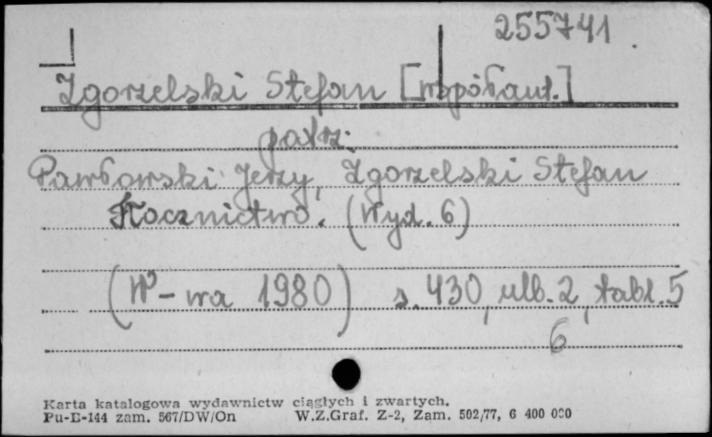 255741
Zgorzelski Stefan [współaut.]
patrz:
Pawłowski Jerzy, Zgorzelski Stefan
Tłocznictwo. (Wyd. 6)
(W-wa 1980) s. 430, ulb. 2, tabl. 5
6
Karta katalogowa wydawnictw ciągłych i zwartych.
Pu-E-144 zam. 567/DW/On W.Z.Graf. Z-2, Zam. 502/77, 6 400 000